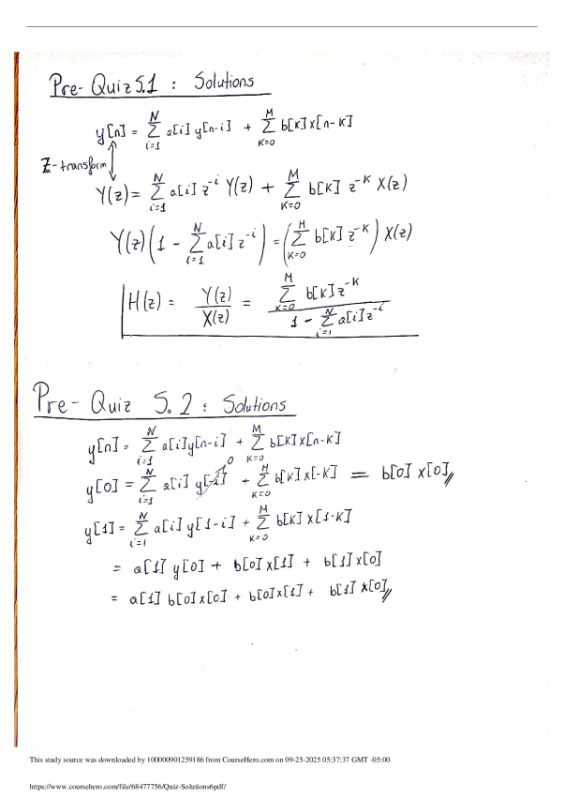 Pre-Quiz 5.1 : Solutions
y[n] = N Σ i=1 a[i] y[n-i] + M Σ K=0 b[K] x[n-K]
Z-transform
Y(z) = N Σ i=1 a[i] z^-i Y(z) + M Σ K=0 b[K] z^-K X(z)
Y(z) (1 - N Σ i=1 a[i] z^-i) = (M Σ K=0 b[K] z^-K) X(z)
H(z) = Y(z) / X(z) = M Σ K=0 b[K] z^-K / 1 - N Σ i=1 a[i] z^-i
Pre-Quiz 5.2 : Solutions
y[n] = N Σ i=1 a[i] y[n-i] + M Σ K=0 b[K] x[n-K]
y[0] = N Σ i=1 a[i] y[-i] 0 + M Σ K=0 b[K] x[-K] = b[0] x[0]
y[1] = N Σ i=1 a[i] y[1-i] + M Σ K=0 b[K] x[1-K]
= a[1] y[0] + b[0] x[1] + b[1] x[0]
= a[1] b[0] x[0] + b[0] x[1] + b[1] x[0]
This study source was downloaded by 100000901259186 from CourseHero.com on 09-25-2025 05:37:37 GMT -05:00
https://www.coursehero.com/file/68477756/Quiz-Solutions6pdf/